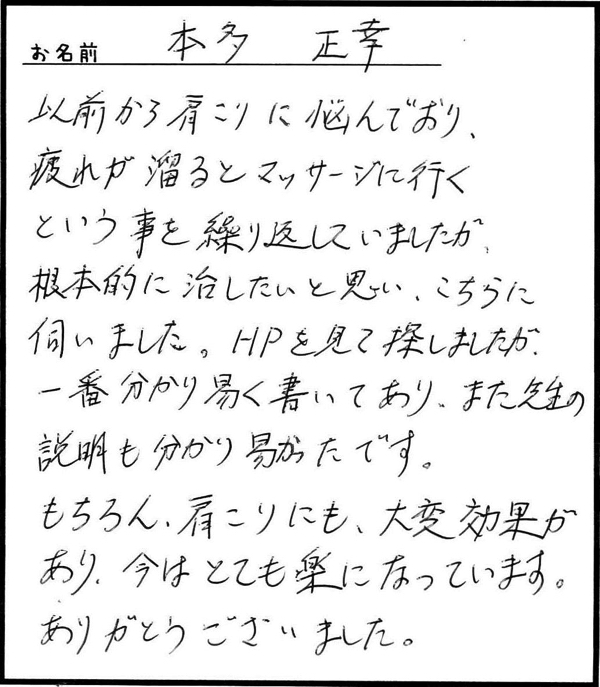 お名前 本多 正幸
以前から肩こりに悩んでおり、
疲れが溜るとマッサージに行く
という事を繰り返していましたが、
根本的に治したいと思い、こちらに
伺いました。HPを見て探しましたが、
一番分かり易く書いてあり、また先生の
説明も分かり易かったです。
もちろん、肩こりにも、大変効果が
あり、今はとても楽になっています。
ありがとうございました。